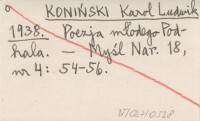 KONIŃSKI Karol Ludwik
1938. Poezja młodego Pod-
hala. — Myśl Nar. 18,
nr 4: 54-56.